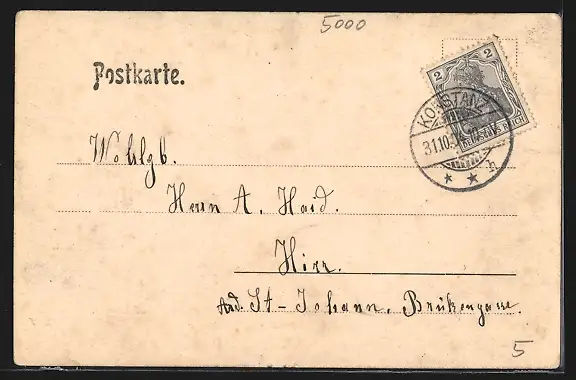 5000
Postkarte.
2 2
KONSTANZ
31.10.
REICH
Wohlgb.
Herrn A. Haid.
Hier.
St-Johann, Brükengasse.
5